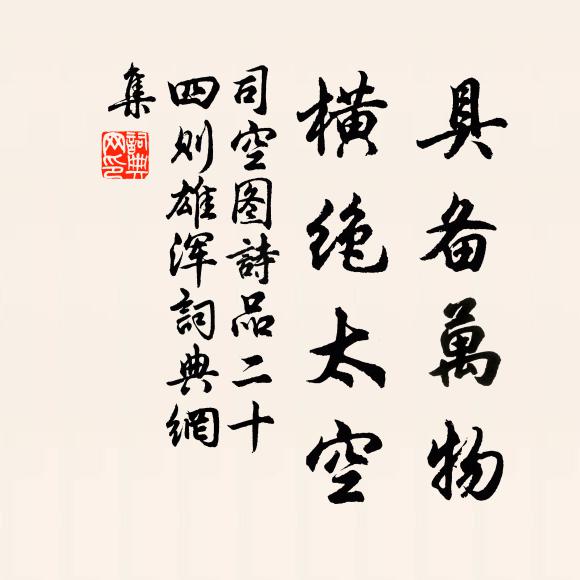 具备萬物
横绝太空
司空图詩品二十
四则雄浑詞典網
集
詞典網印